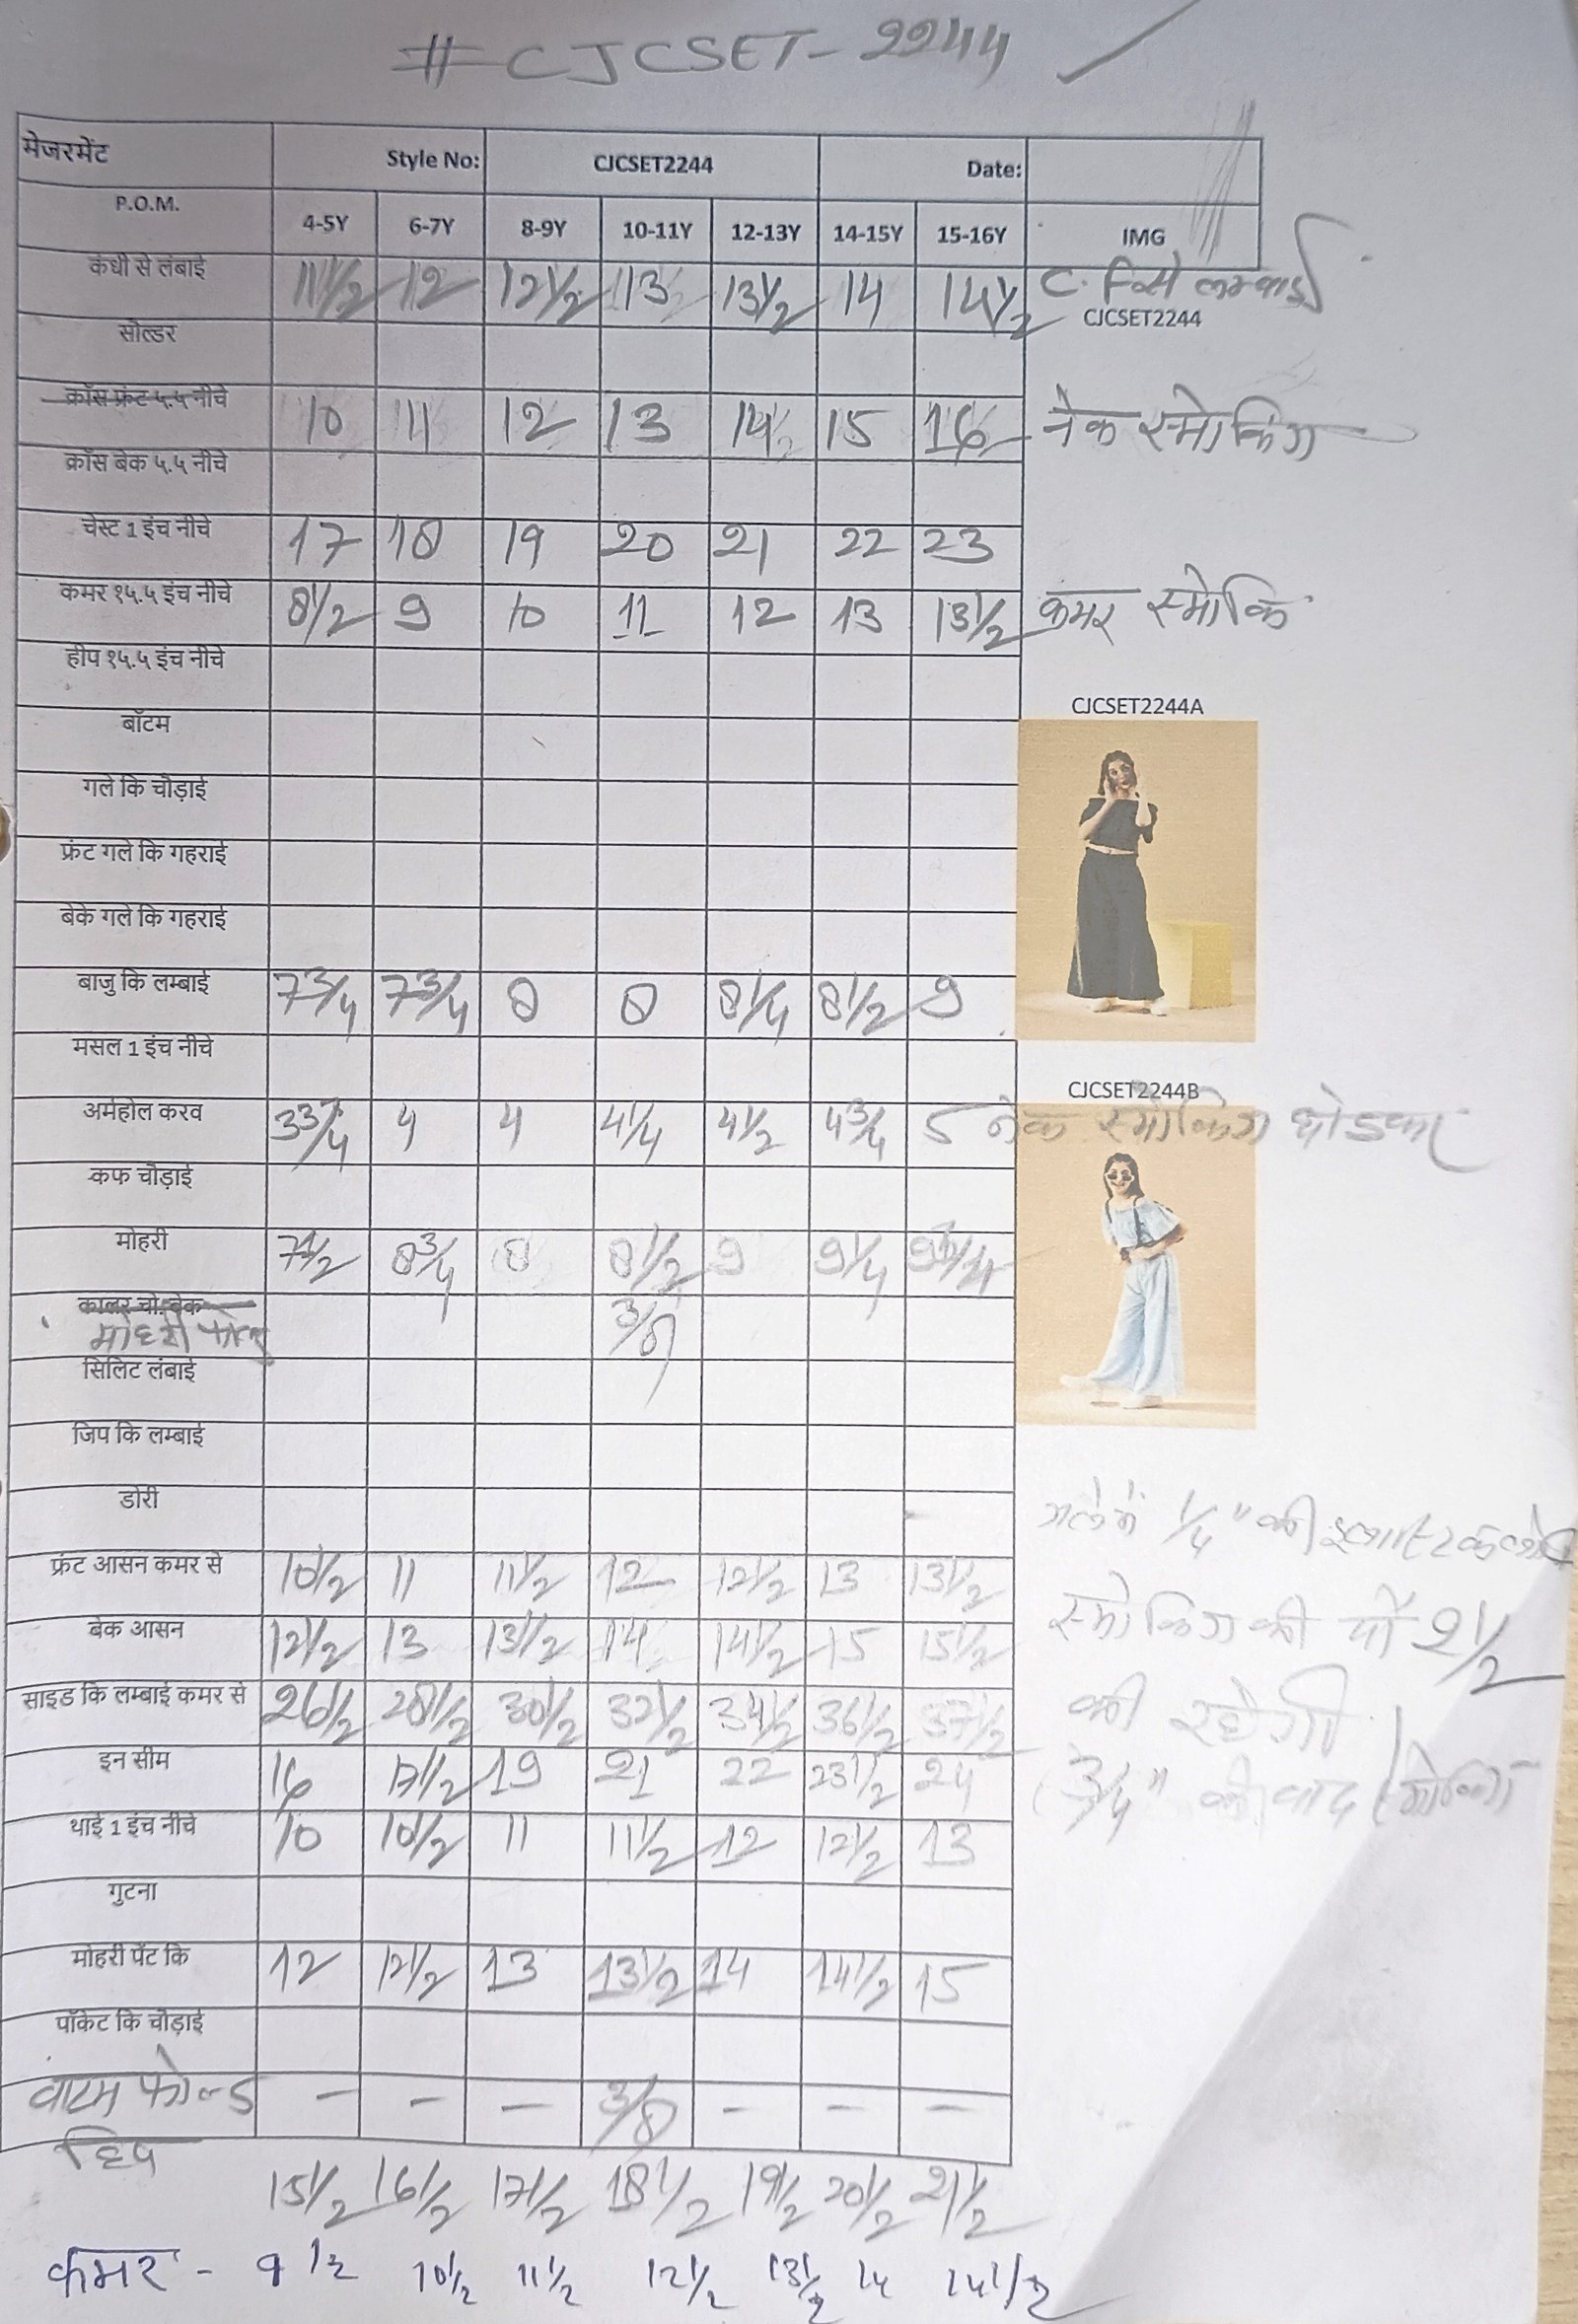 # CJCSET-2244
मेजरमेंट Style No: CJCSET2244 Date:
P.O.M. 4-5Y 6-7Y 8-9Y 10-11Y 12-13Y 14-15Y 15-16Y IMG
कंधी से लंबाई 11 1/2 12 12 1/2 13 13 1/2 14 14 1/2 C. F से लम्बाई
CJCSET2244
सोल्डर
क्रॉस फ्रंट ५.५ नीचे 10 11 12 13 14 15 16 नेक स्मोकिंग
क्रॉस बेक ५.५ नीचे
चेस्ट 1 इंच नीचे 17 18 19 20 21 22 23
कमर १५.५ इंच नीचे 8 1/2 9 10 11 12 13 13 1/2 कमर स्मोकि
हीप १५.५ इंच नीचे
CJCSET2244A
बॉटम
गले कि चौड़ाई
फ्रंट गले कि गहराई
बेके गले कि गहराई
बाजु कि लम्बाई 7 3/4 7 3/4 8 8 8 1/4 8 1/2 9
मसल 1 इंच नीचे
CJCSET2244B
अर्महोल करव 3 3/4 4 4 4 1/4 4 1/2 4 3/4 5 नेक स्मोकिंग छोडकर
कफ चौड़ाई
मोहरी 7 1/2 8 3/4 8 8 1/2 9 9 1/4
कालर चो. बेक
मोहरी फोल्ड 3/8
सिलिट लंबाई
जिप कि लम्बाई
डोरी
गले में 1/4" की
फ्रंट आसन कमर से 10 1/2 11 11 1/2 12 12 1/2 13 13 1/2
स्मोकिंग की चौ 2 1/2
बेक आसन 12 1/2 13 13 1/2 14 14 1/2 15 15 1/2
साइड कि लम्बाई कमर से 26 1/2 28 1/2 30 1/2 32 1/2 34 1/2 36 1/2 37 1/2 की रहेगी
इन सीम 16 17 1/2 19 21 22 23 1/2 24 (3/4" के बाद स्मोकिंग
थाई 1 इंच नीचे 10 10 1/2 11 11 1/2 12 12 1/2 13
गुटना
मोहरी पेंट कि 12 12 1/2 13 13 1/2 14 14 1/2 15
पॉकेट कि चौड़ाई
वाटम फोल्ड - - - 3/8 - - -
हिप 15 1/2 16 1/2 17 1/2 18 1/2 19 1/2 20 1/2 21 1/2
कमर - 9 1/2 10 1/2 11 1/2 12 1/2 13 1/2 14 14 1/2